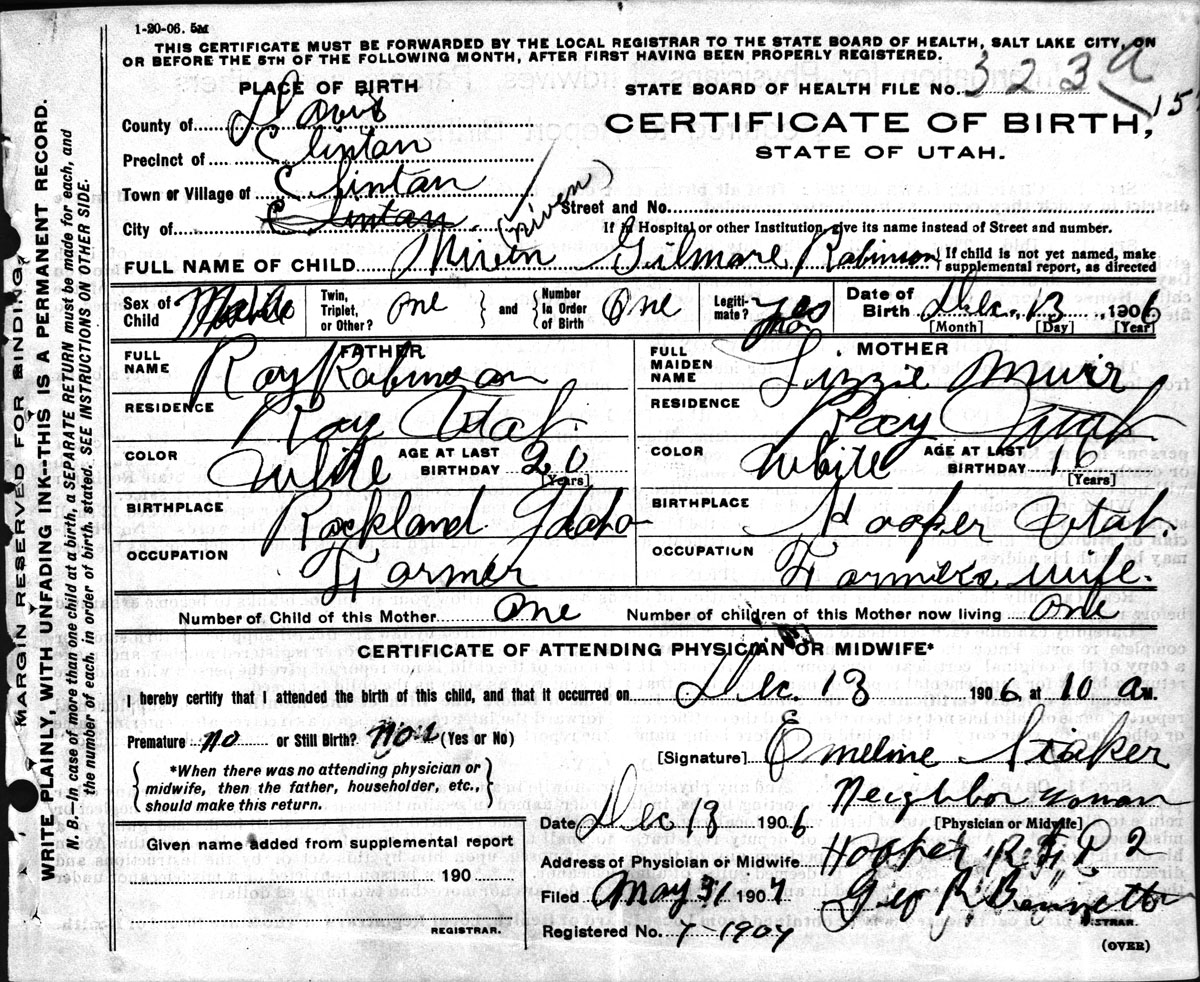 1-20-06. 5M
THIS CERTIFICATE MUST BE FORWARDED BY THE LOCAL REGISTRAR TO THE STATE BOARD OF HEALTH, SALT LAKE CITY, ON
OR BEFORE THE 5TH OF THE FOLLOWING MONTH, AFTER FIRST HAVING BEEN PROPERLY REGISTERED.
PLACE OF BIRTH
STATE BOARD OF HEALTH FILE No. 323 a
15
County of Davis
CERTIFICATE OF BIRTH,
Precinct of Clinton
STATE OF UTAH.
Town or Village of Clinton
City of Clinton
Street and No.
If in Hospital or other Institution, give its name instead of Street and number.
(Niven)
FULL NAME OF CHILD Miven Gilmore Robinson
If child is not yet named, make supplemental report, as directed
Sex of Child Male
Twin, Triplet, or Other? one
and
Number in Order of Birth One
Legitimate? yes
Date of Birth Dec. 13, 1906
[Month] [Day] [Year]
FATHER
FULL NAME Roy Robinson
RESIDENCE Roy Utah
COLOR White AGE AT LAST BIRTHDAY 20
[Years]
BIRTHPLACE Rockland Idaho
OCCUPATION Farmer
MOTHER
FULL MAIDEN NAME Lizzie Muir
RESIDENCE Roy Utah
COLOR White AGE AT LAST BIRTHDAY 16
[Years]
BIRTHPLACE Hooper Utah.
OCCUPATION Farmers wife.
Number of Child of this Mother One
Number of children of this Mother now living One
CERTIFICATE OF ATTENDING PHYSICIAN OR MIDWIFE*
I hereby certify that I attended the birth of this child, and that it occurred on Dec. 13 1906 at 10 a M.
Premature no or Still Birth? (Yes or No)
[Signature] Emeline Staker
*When there was no attending physician or
midwife, then the father, householder, etc.,
should make this return.
Neighbor woman
[Physician or Midwife]
Date Dec 18 1906
Given name added from supplemental report
190
REGISTRAR.
Address of Physician or Midwife Hooper R F D 2
Filed May 31 1907 Geo R Bennett
REGISTRAR.
Registered No. 7-1907
(OVER)
MARGIN RESERVED FOR BINDING.
WRITE PLAINLY, WITH UNFADING INK--THIS IS A PERMANENT RECORD.
N. B.—In case of more than one child at a birth, a SEPARATE RETURN must be made for each, and
the number of each, in order of birth, stated. SEE INSTRUCTIONS ON OTHER SIDE.